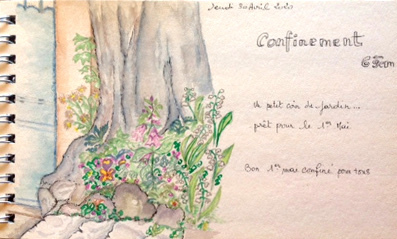 Jeudi 30 Avril 2020
Confinement
Un petit coin de jardin...
prêt pour le 1er Mai
Bon 1er mai confiné pour tous